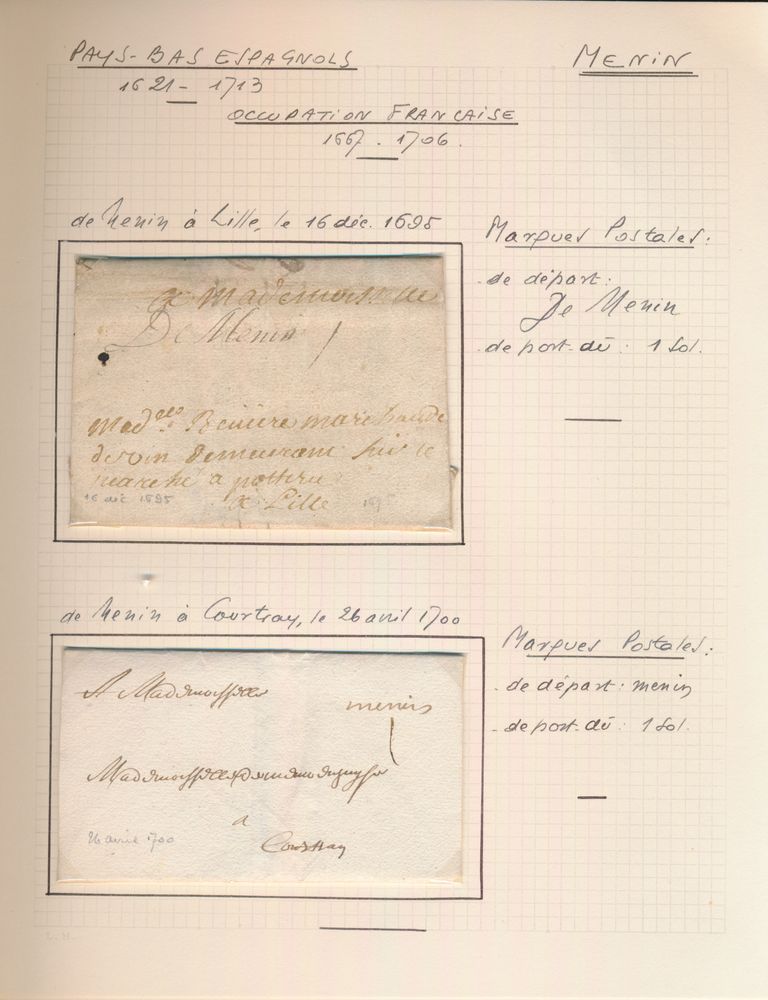 PAYS-BAS ESPAGNOLS
1621 - 1713
MENIN
OCCUPATION FRANCAISE
1667 - 1706.
de Menin à Lille, le 16 déc. 1695
Marques Postales:
- de départ:
De Menin
- de port-dû: 1 Sol.
a Mademoiselle
De Menin
mad.elle marchande
de vin demeurant sur le
marché a
a Lille
16 déc 1695
de Menin à Courtray, le 26 avril 1700
Marques Postales:
- de départ: menin
- de port-dû: 1 Sol.
A Mademoisselle
menin
a
Courtray
26 avril 1700